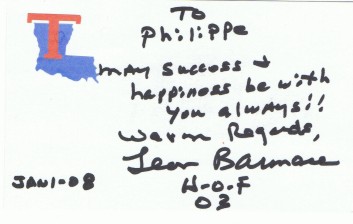 To
Philippe
T
May Success &
happiness be with
you always!!
Warm Regards,
Leon Barmore
JAN 1-08
H-O-F
03